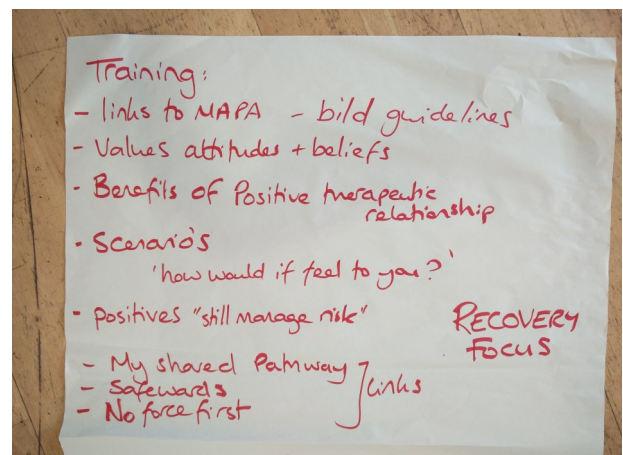 Training:
- links to MAPA - bild guidelines
- Values attitudes + beliefs
- Benefits of Positive therapeutic
relationship
- Scenario's
'how would if feel to you?'
- positives "still manage risk"
RECOVERY
FOCUS
- My shared Pathway
- Safewards
- No force first
] links